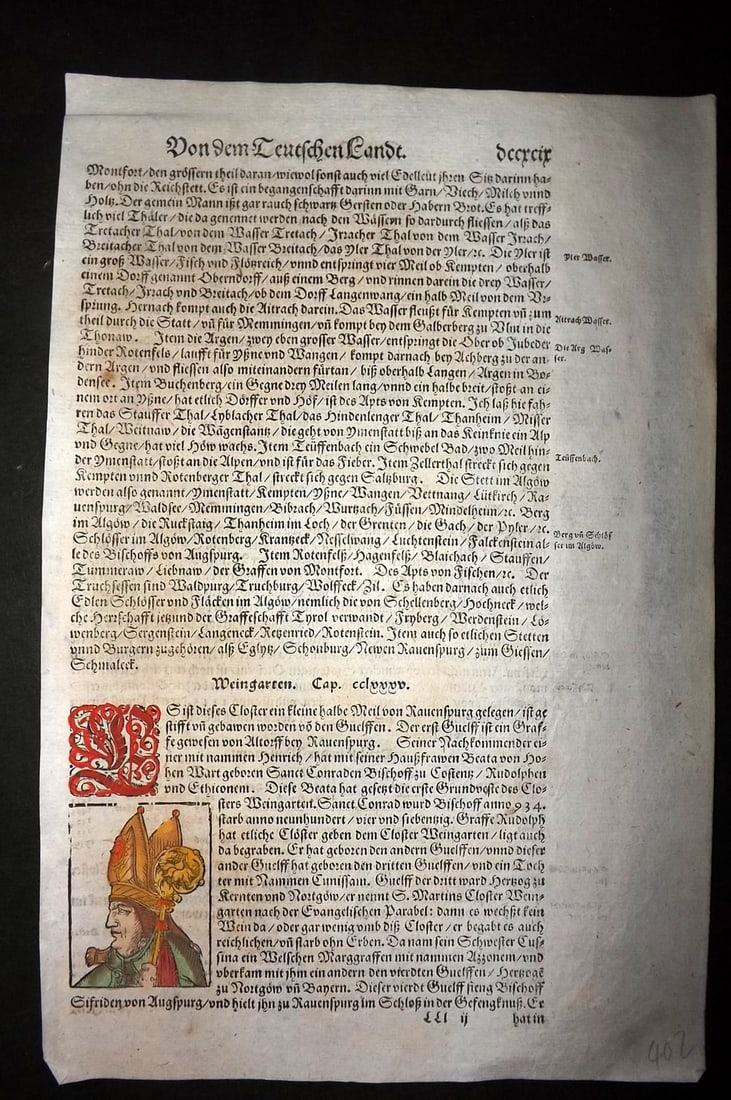 Von dem Teutschen Landt. dccxcix
Montfort/den grössern theil daran/wiewol sonst auch viel Edelleut jhren Sitz darinn ha-
ben/ohn die Reichstett. Es ist ein begangenschafft darinn mit Garn/Viech/Milch vnnd
Holtz. Der gemein Mann ißt gar rauch schwartz Gersten oder Habern Brot. Es hat treff-
lich viel Thäler/die da genennet werden nach den Wässern so dardurch fliessen/alß das
Tretacher Thal/von dem Wasser Tretach/Jrracher Thal von dem Wasser Jrrach/
Breitacher Thal von dem Wasser Breitach/das Yler Thal von der Yler/rc. Die Yler ist
ein groß Wasser/Fisch vnd Flötzreich/vnnd entspringt vier Meil ob Kempten/oberhalb
einem Dorff genannt Oberndorff/auß einem Berg/vnd rinnen darein die drey Wasser/
Tretach/Jrrach vnd Breitach/ob dem Dorff Langenwang/ein halb Meil von dem Vr-
sprung. Hernach kompt auch die Aitrach darein. Das Wasser fleußt für Kempten vñ zum
theil durch die Statt/vñ für Memmingen/vñ kompt bey dem Galberberg zu Vlm in die
Thonaw. Jtem die Argen/zwey eben grosser Wasser/entspringt die Ober ob Jubeder
hinder Rotenfels/laufft für Yßne vnd Wangen/kompt darnach bey Achberg zu der an-
dern Argen/vnd fliessen also miteinander fürtan/biß oberhalb Langen/Argen in Bo-
densee. Jtem Buchenberg/ein Gegne drey Meilen lang/vnnd ein halbe breit/stoßt an ei-
nem ort an Yßne/hat etlich Dörffer vnd Höf/ist des Apts von Kempten. Jch laß hie fah-
ren das Stauffer Thal/Lyblacher Thal/das Hindenlenger Thal/Thanheim/Misser
Thal/Weitnaw/die Wägenstantz/die geht von Ymenstatt biß an das Keinknie ein Alp
vnd Gegne/hat viel Höw wachs. Jtem Teüffenbach ein Schwebel Bad/zwo Meil hin-
der Ymenstatt/stoßt an die Alpen/vnd ist für das Fieber. Jtem Zellerthal streckt sich gegen
Kempten vnnd Rotenberger Thal/streckt sich gegen Saltzburg. Die Stett im Algöw
werden also genannt/Ymenstatt/Kempten/Yßne/Wangen/Vettnang/Lütkirch/Ra-
uenspurg/Waldsee/Memmingen/Bibrach/Wurtzach/Füssen/Mindelheim/rc. Berg
im Algöw/die Ruckstaig/Thanheim im Loch/der Grenten/die Gach/der Pyser/rc.
Schlösser im Algöw/Rotenberg/Krantzeck/Nesselwang/Luchtenstein/Falckenstein al-
le des Bischoffs von Augspurg. Jtem Rotenfelß/Hagenfelß/Blaichach/Stauffen/
Tummeraw/Liebnaw/der Graffen von Montfort. Des Apts von Fischen/rc. Der
Truchsessen sind Waldpurg/Truchburg/Wolffeck/Zil. Es haben darnach auch etlich
Edlen Schlösser vnd Fläcken im Algöw/nemlich die von Schellenberg/Hochneck/wel-
che Herrschafft jetzund der Graffeschafft Tyrol verwandt/Fryberg/Werdenstein/Lö-
wenberg/Sergenstein/Langeneck/Retzenried/Rotenstein. Jtem auch so etlichen Stetten
vnnd Burgern zugehören/alß Eglytz/Schonburg/Newen Rauenspurg/zum Giessen/
Schmaleck.
Yler Wasser.
Aitrach Wasser.
Die Arg Was-
ser.
Teüffenbach.
Berg vñ Schlös
ser im Algöw.
Weingarten. Cap. cclxxxv.
ES ist dieses Closter ein kleine halbe Meil von Rauenspurg gelegen/ist ge
stifft vñ gebawen worden võ den Guelffen. Der erst Guelff ist ein Graf-
fe gewesen von Altorff bey Rauenspurg. Seiner Nachkommender ei-
ner mit nammen Henrich/hat mit seiner Haußfrawen Beata von Ho-
hen Wart geboren Sanct Conraden Bischoff zu Costentz/Rudolphen
vnd Ethiconem. Diese Beata hat gesetzt die erste Grundveste des Clo-
sters Weingarten. Sanct Conrad wurd Bischoff anno 934.
starb anno neunhundert/vier vnd siebentzig. Graffe Rudolph
hat etliche Clöster geben dem Closter Weingarten/ligt auch
da begraben. Er hat geboren den andern Guelffen/vnnd dieser
ander Guelff hat geboren den dritten Guelffen/vnd ein Toch
ter mit Nammen Cunissam. Guelff der dritt ward Hertzog zu
Kernten vnd Nortgöw/er nennt S. Martins Closter Wein-
garten nach der Evangelischen Parabel: dann es wechßt kein
Wein da/oder gar wenig vmb diß Closter/er begabt es auch
reichlichen/vñ starb ohn Erben. Da nam sein Schwester Cus-
sina ein Welschen Marggraffen mit nammen Azzonem/vnd
vberkam mit jhm ein andern den vierdten Guelffen/Hertzogẽ
zu Nortgöw vñ Bayern. Dieser vierdt Guelff fieng Bischoff
Sifriden von Augspurg/vnd hielt jhn zu Rauenspurg im Schloß in der Gefengknuß. Er
LLl ij hat in
402